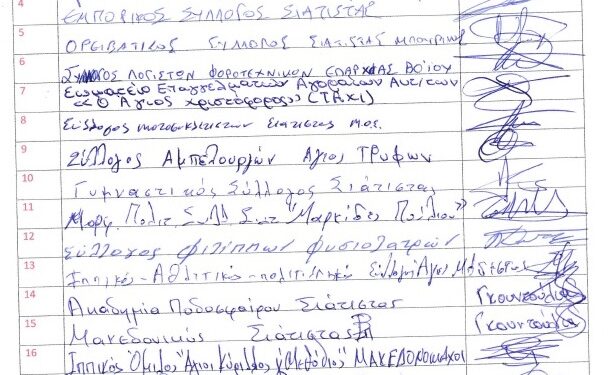 4 ΕΜΠΟΡΙΚΟΣ ΣΥΛΛΟΓΟΣ ΣΙΑΤΙΣΤΑΣ
5 ΟΡΕΙΒΑΤΙΚΟΣ ΣΥΛΛΟΓΟΣ ΣΙΑΤΙΣΤΑΣ
6 ΣΥΛΛΟΓΟΣ ΛΟΓΙΣΤΩΝ ΦΟΡΟΤΕΧΝΙΚΩΝ ΕΠΑΡΧΙΑΣ ΒΟΪΟΥ
7 Σωματείο Επαγγελματιών Αγοραίων Αυτ/των
"Ο Άγιος Χριστόφορος" (ΤΑΧΙ)
8 Σύλλογος μοτοσυκλετιστών Σιάτιστας
9 Σύλλογος Αμπελουργών Άγιος Τρύφων
10 Γυμναστικός Σύλλογος Σιάτιστας
11 Μορφ. Πολιτ. Συλλ Σιατ "Μαρκίδες Πούλιου"
12 Σύλλογος φιλίππων φυσιολατρών
13 Ιππικός-Αθλητικός-πολιτιστικός Σύλλογος Άγιος
14 Ακαδημία Ποδοσφαίρου Σιάτιστας Γκουντούλιας
15 Μακεδονικός Σιάτιστας Γκουντούλιας
16 Ιππικός Όμιλος "Άγιοι Κύριλλος & Μεθόδιος" ΜΑΚΕΔΟΝΟΜΑΧΟΙ